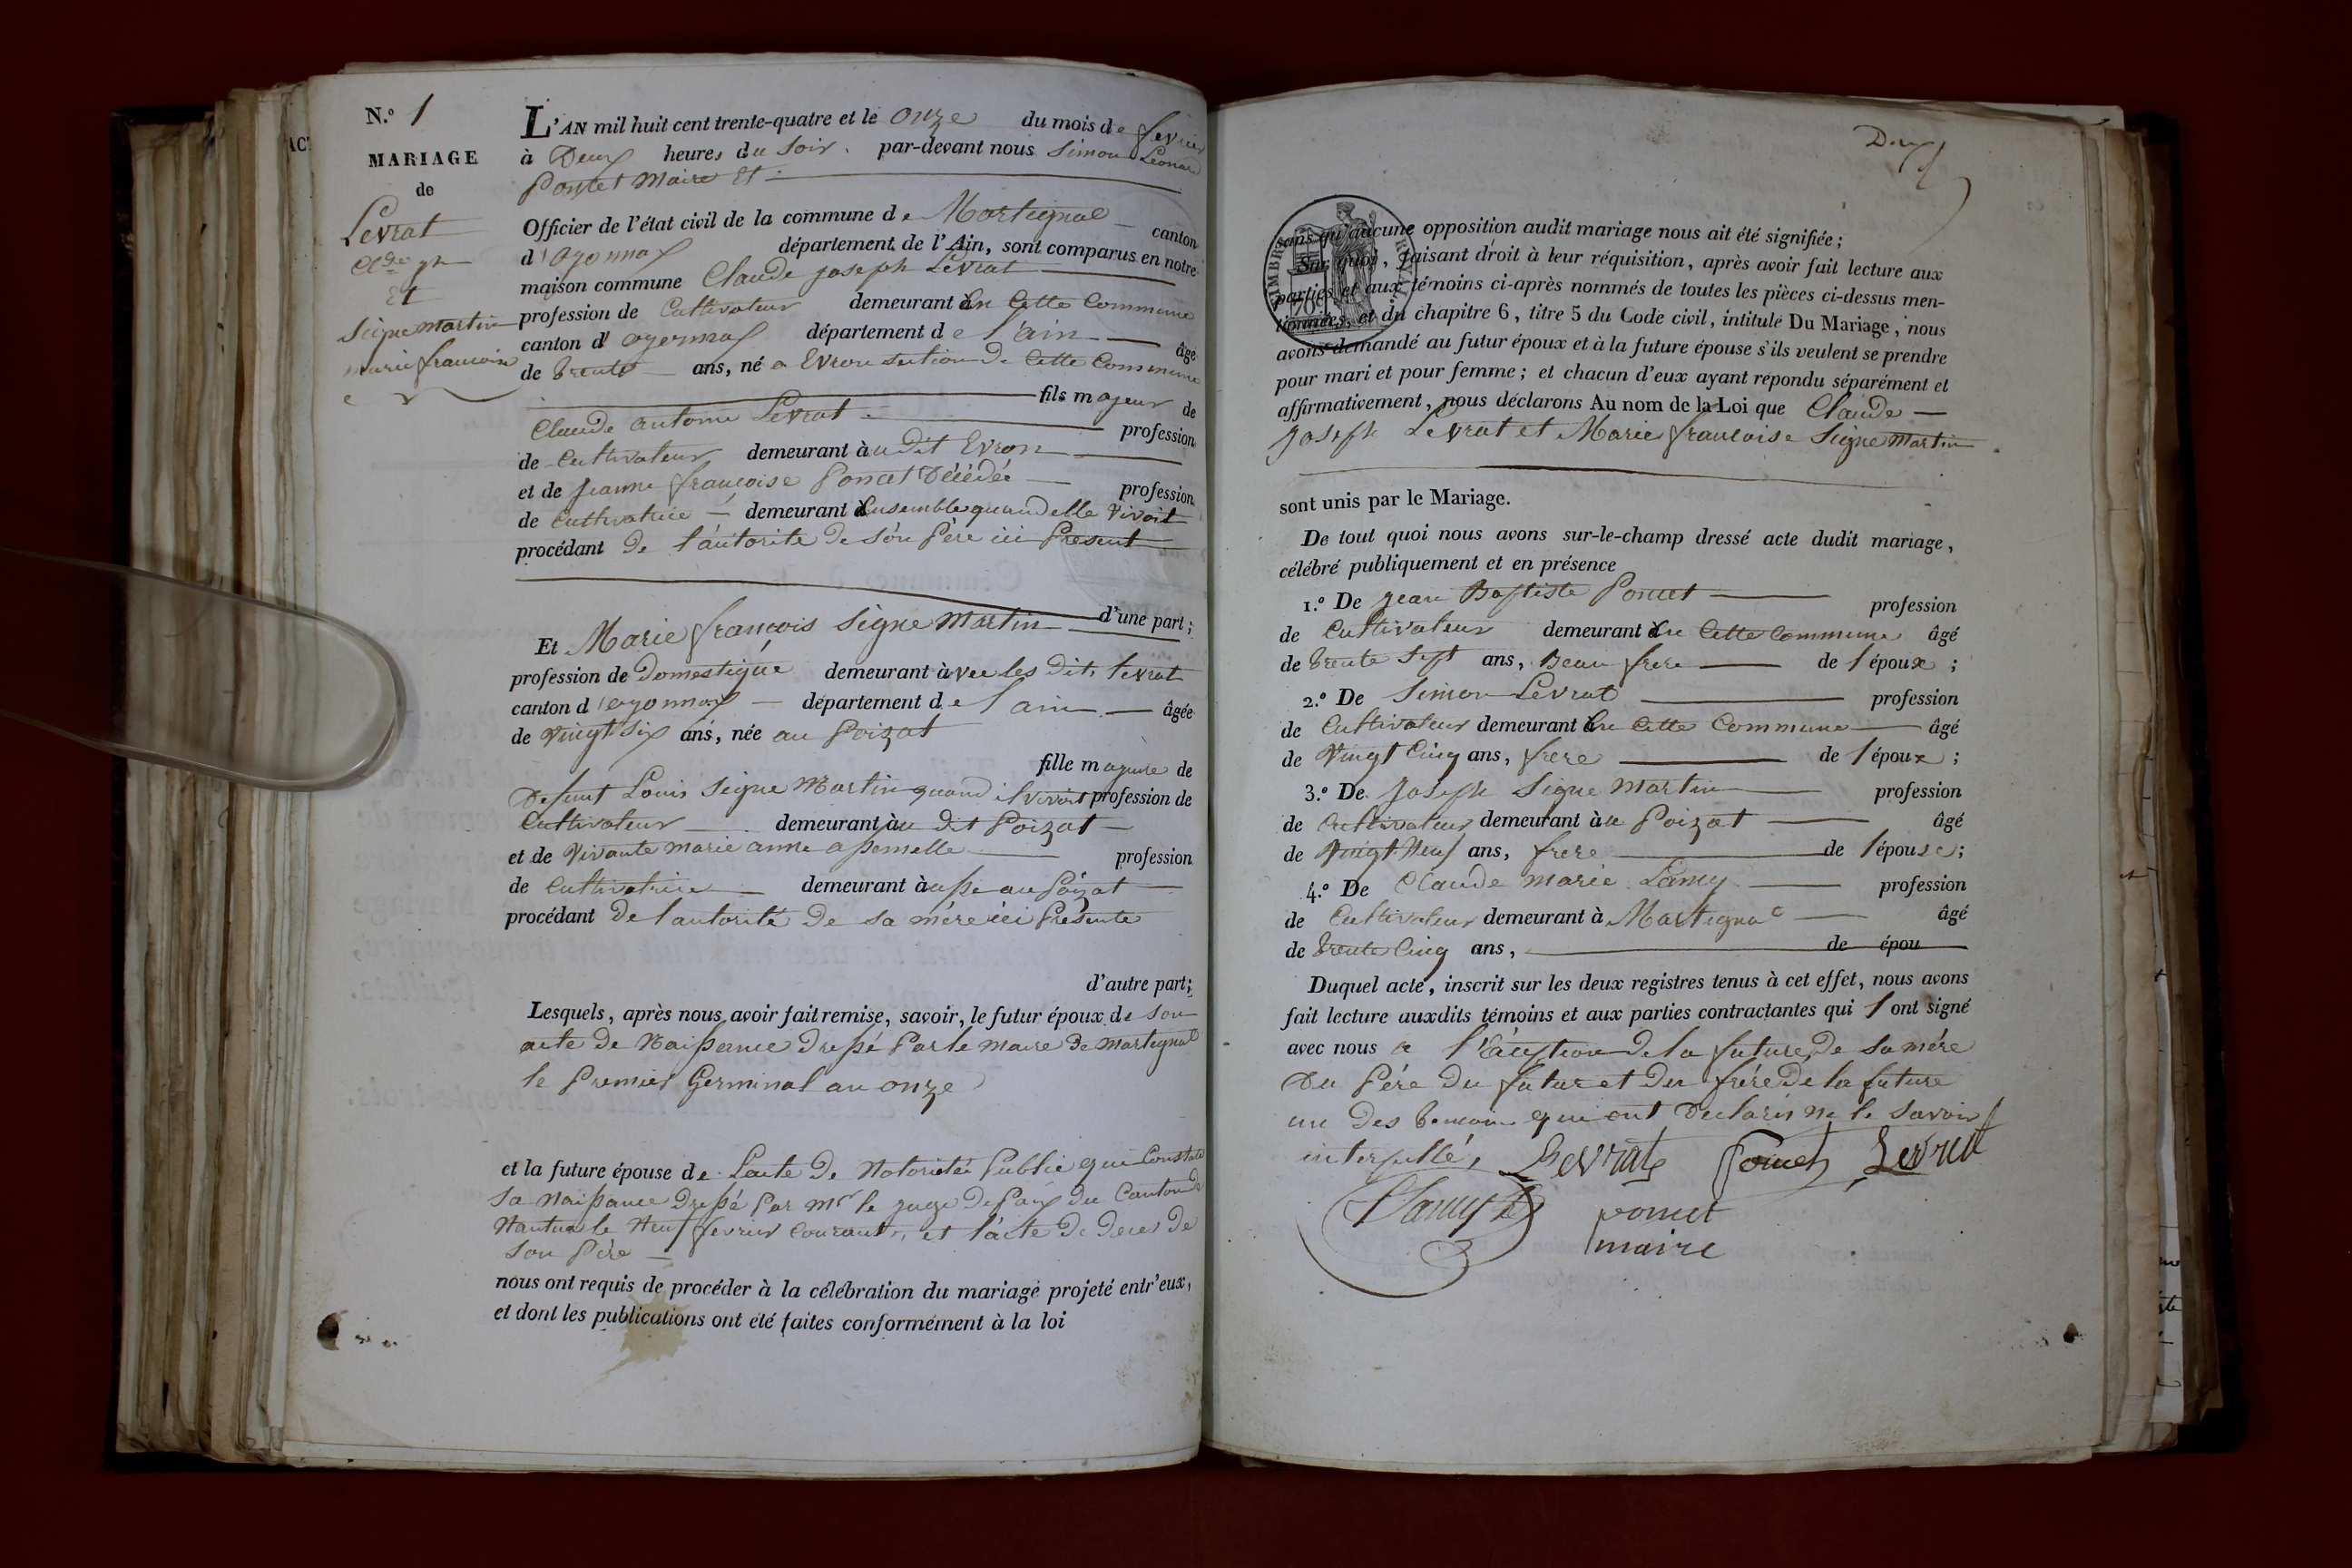 N.º 1
MARIAGE
de
Levrat
Cl.de jh
Et
Seigne martin
marie francoise
L'AN mil huit cent trente-quatre et le onze du mois de fevrier
à Deux heures du Soir. par-devant nous Simon Léonard
Poncet Maire Et
Officier de l'état civil de la commune de Martignat canton
d'oyonnax département de l'Ain, sont comparus en notre
maison commune Claude joseph Levrat
profession de Cultivateur demeurant En Cette Commune
canton d'oyonnax département de l'ain âgé
de trente ans, né a Evron section de Cette Commune
fils majeur de
Claude antoine Levrat profession
de Cultivateur demeurant au dit Evron
et de jeanne françoise Poncet Décédée profession
de Cultivatrice demeurant Ensemble quand elle vivoit
procédant de l'autorite de son Père ici Present
d'une part;
Et Marie françois Seigne martin
profession de Domestique demeurant avec les dits levrat
canton d'oyonnax département de l'ain âgée
de vingt six ans, née au Poizat
fille majeure de
Defunt Louis Seigne Martin quand il vivoit profession de
Cultivateur demeurant au dit Poizat
et de vivante marie anne profession
de Cultivatrice demeurant au Poizat
procédant de l'autorité de sa mère ici Présente
d'autre part;
Lesquels, après nous avoir fait remise, savoir, le futur époux de son
acte de Naissance Dressé Par le maire de Martignat
le Premier Germinal an onze
et la future épouse de L'acte de Notoriété Public qui Constate
Sa Naissance Dressé Par Mr le juge de Paix du Canton de
Nantua le Neuf fevrier Courant, et l'acte de deces de
Son Père
nous ont requis de procéder à la célébration du mariage projeté entr'eux,
et dont les publications ont été faites conformément à la loi
Deux
TIMBRE ROYAL
70c
sans qu'aucune opposition audit mariage nous ait été signifiée;
Sur quoi, faisant droit à leur réquisition, après avoir fait lecture aux
parties et aux témoins ci-après nommés de toutes les pièces ci-dessus men-
tionnées, et du chapitre 6, titre 5 du Code civil, intitulé Du Mariage, nous
avons demandé au futur époux et à la future épouse s'ils veulent se prendre
pour mari et pour femme; et chacun d'eux ayant répondu séparément et
affirmativement, nous déclarons Au nom de la Loi que Claude
joseph Levrat et Marie francoise Seigne martin
sont unis par le Mariage.
De tout quoi nous avons sur-le-champ dressé acte dudit mariage,
célébré publiquement et en présence
1.º De jean Baptiste Poncet profession
de Cultivateur demeurant En Cette Commune âgé
de trente Sept ans, Beau frere de l'époux;
2.º De Simon Levrat profession
de Cultivateur demeurant En Cette Commune âgé
de vingt Cinq ans, frere de l'époux;
3.º De Joseph Seigne martin profession
de Cultivateur demeurant au Poizat âgé
de vingt Neuf ans, frere de l'épouse;
4.º De Claude marie Lamy profession
de Cultivateur demeurant à Martignat âgé
de trente Cinq ans, de épou
Duquel acte, inscrit sur les deux registres tenus à cet effet, nous avons
fait lecture auxdits témoins et aux parties contractantes qui l'ont signé
avec nous a l'Exception de la future, de sa mère
Du Père du futur et du frère de la future
un des temoins qui ont declarés ne le savoir
interpellé, Levrat Poncet Levrat
Lamy
poncet
maire